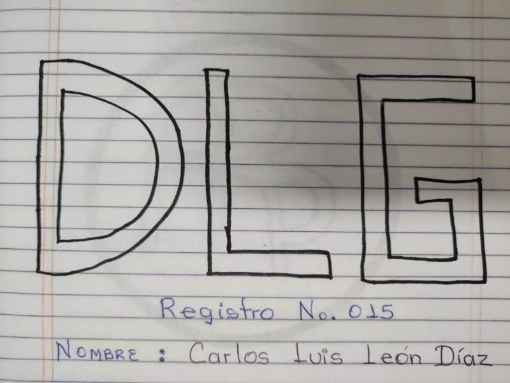 DLG
Registro No. 015
NOMBRE : Carlos Luis León Díaz